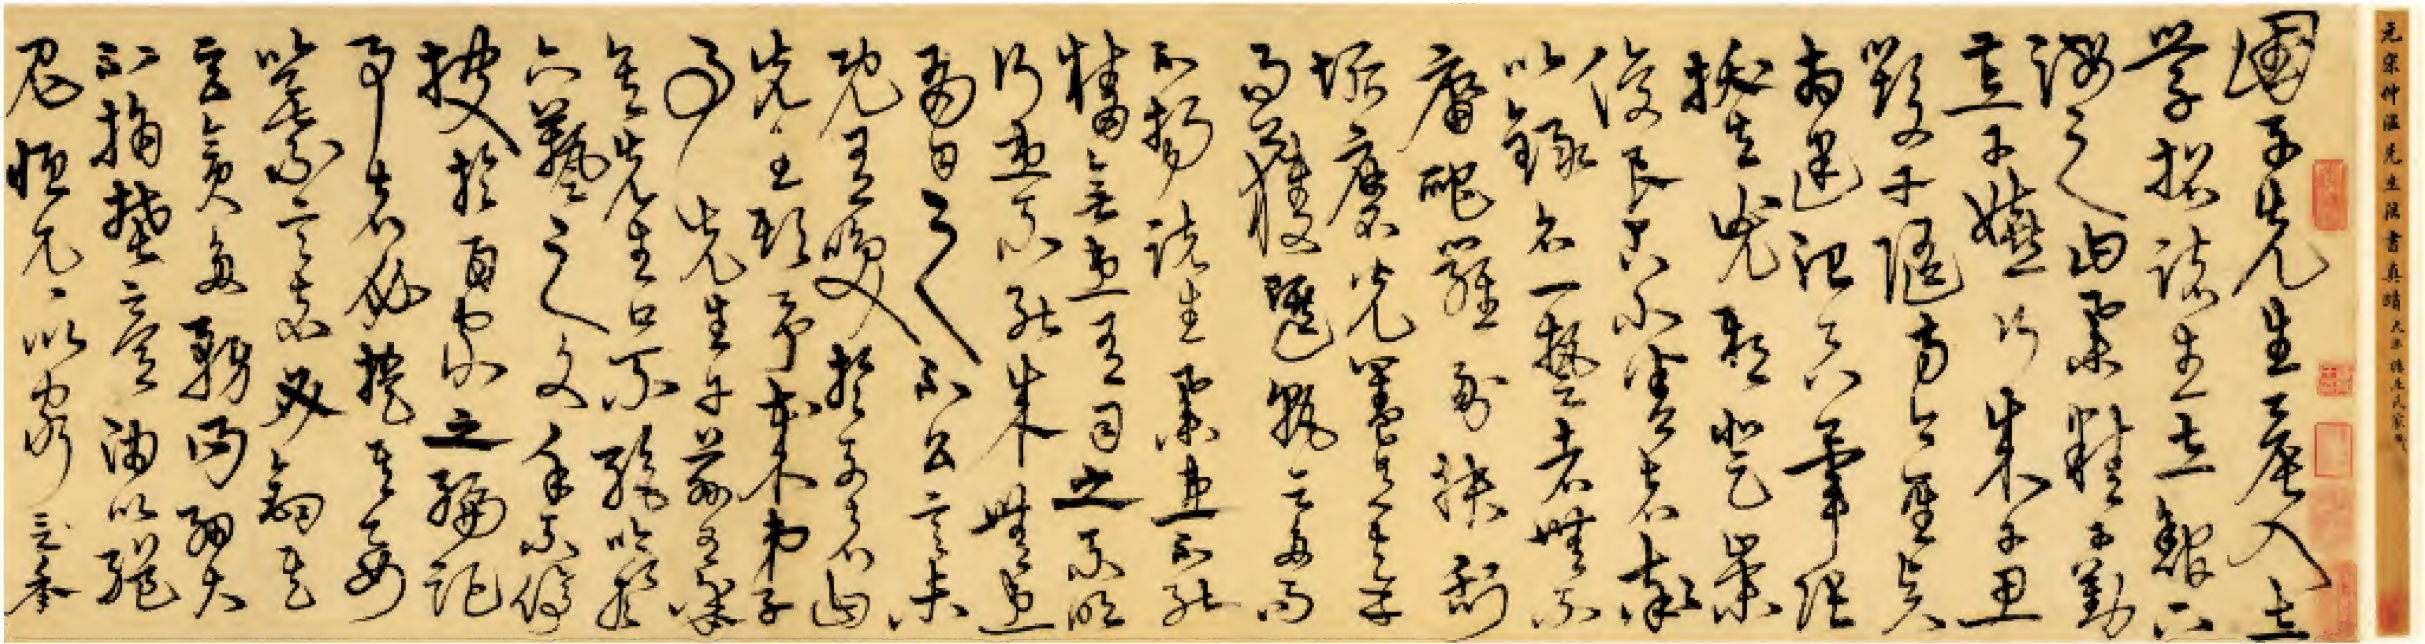 元宋仲温先生法書真蹟
國子先生晨入太
學招諸生立館下
誨之曰業精于勤
荒于嬉行成于思
毀于隨方今聖賢
相逢治具畢張
拔去兇邪登崇
俊良占小善者率
以錄名一藝者無不
庸爬羅剔抉刮
垢磨光蓋有幸
而獲選孰云多而
不揚諸生業患不能
精無患有司之不明
行患不能成無患
有司之不公言未
既有笑於列者曰
先生欺予哉弟子
事先生于茲有年
矣先生口不絕吟於
六藝之文手不停
披於百家之編記
事者必提其要
纂言者必鉤其
玄貪多務得細大
不捐焚膏油以繼
晷恒兀〻以窮